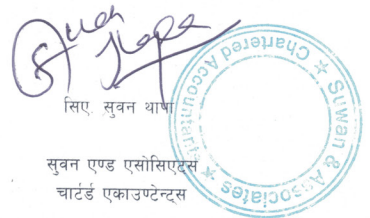 सिए. सुवन थापा
सुवन एण्ड एसोसिएट्स
चार्टर्ड एकाउण्टेन्ट्स
Suwan & Associates
Chartered Accountants